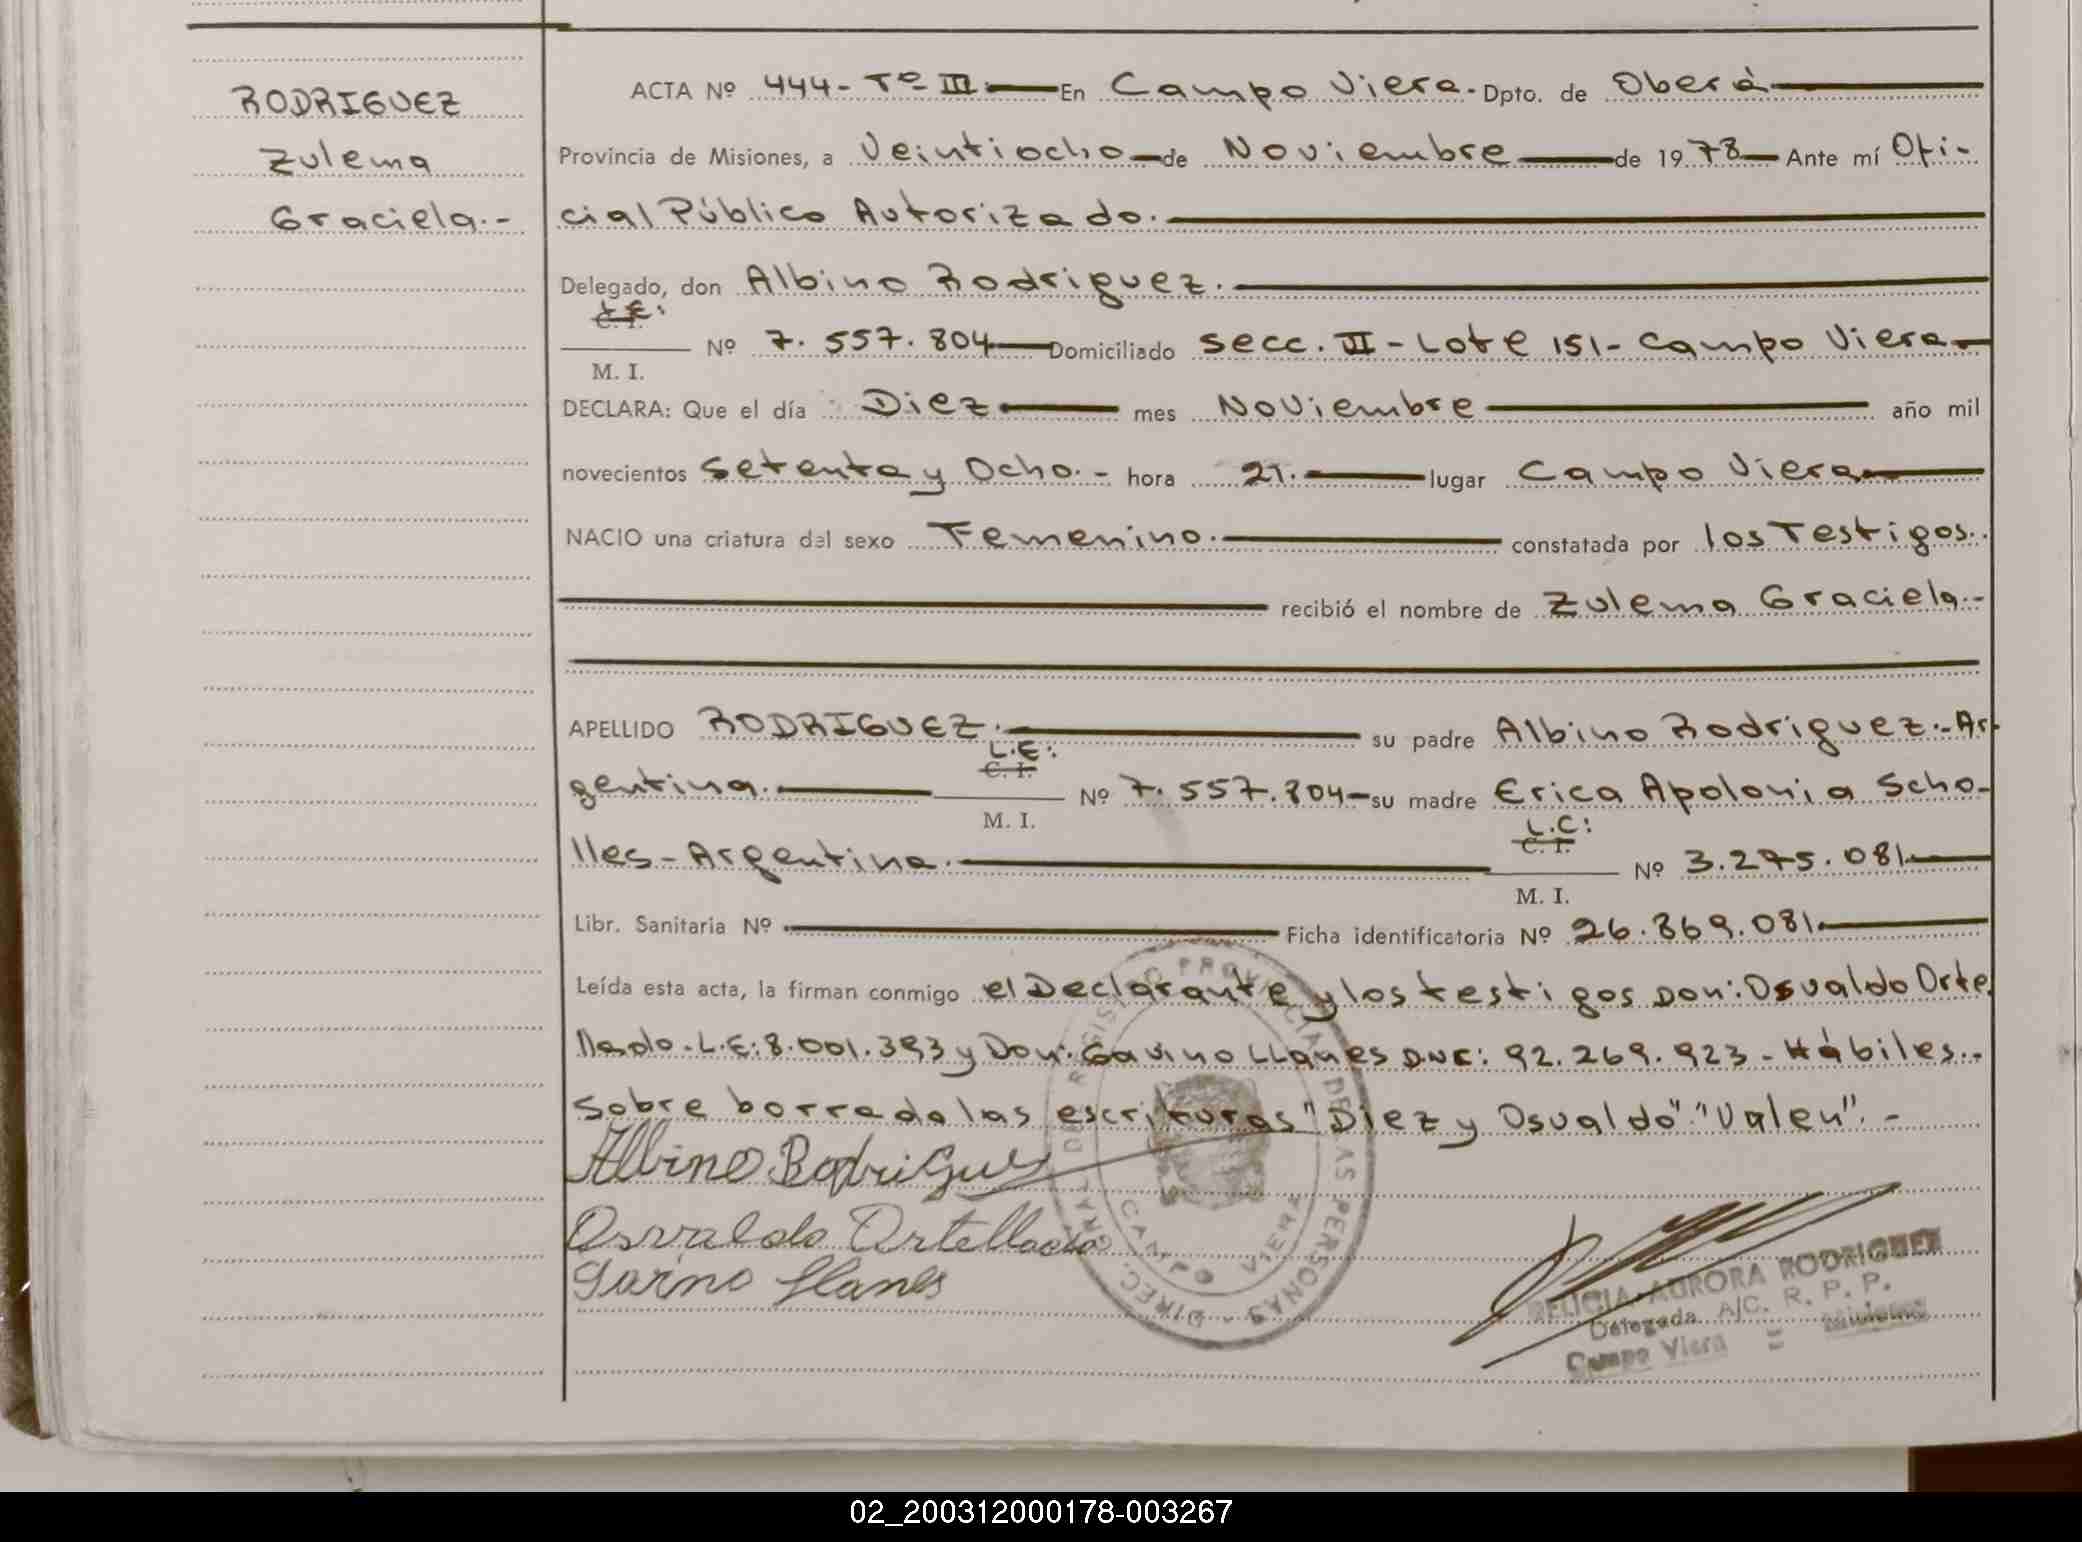 RODRIGUEZ
Zulema
Graciela.-
ACTA Nº 444- Tº III En Campo Viera. Dpto. de Oberá
Provincia de Misiones, a Veintiocho de Noviembre de 1978 Ante mí Ofi-
cial Público Autorizado.
Delegado, don Albino Rodriguez.
L.E:
C. I.
Nº 7.557.804 Domiciliado Secc. II - Lote 151 - Campo Viera
M. I.
DECLARA: Que el día Diez mes Noviembre año mil
novecientos Setenta y Ocho.- hora 21. lugar Campo Viera
NACIO una criatura del sexo Femenino. constatada por los Testigos.
recibió el nombre de Zulema Graciela.-
APELLIDO RODRIGUEZ. su padre Albino Rodriguez.- Ar-
L.E:
C. I.
gentina. Nº 7.557.804 su madre Erica Apolonia Scho-
M. I.
L.C:
C. I.
lles - Argentina. Nº 3.275.081
M. I.
Libr. Sanitaria Nº Ficha identificatoria Nº 26.869.081
Leída esta acta, la firman conmigo el Declarante y los testigos Don: Osvaldo Orte
llado. L.E: 8.001.393 y Don: Gavino LLanes DNE: 92.269.923 - Hábiles.-
Sobre borrado las escrituras "Diez y Osvaldo" "Valen".-
Albino Rodriguez
Osvaldo Ortellado
Gavino Llanes
DIREC. GRAL. DEL REGISTRO PROVINCIAL DE LAS PERSONAS
CAMPO VIERA
FELICIA AURORA RODRIGUEZ
Delegada A/C. R. P. P.
Campo Viera = Misiones
02_200312000178-003267